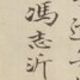 馮志沂